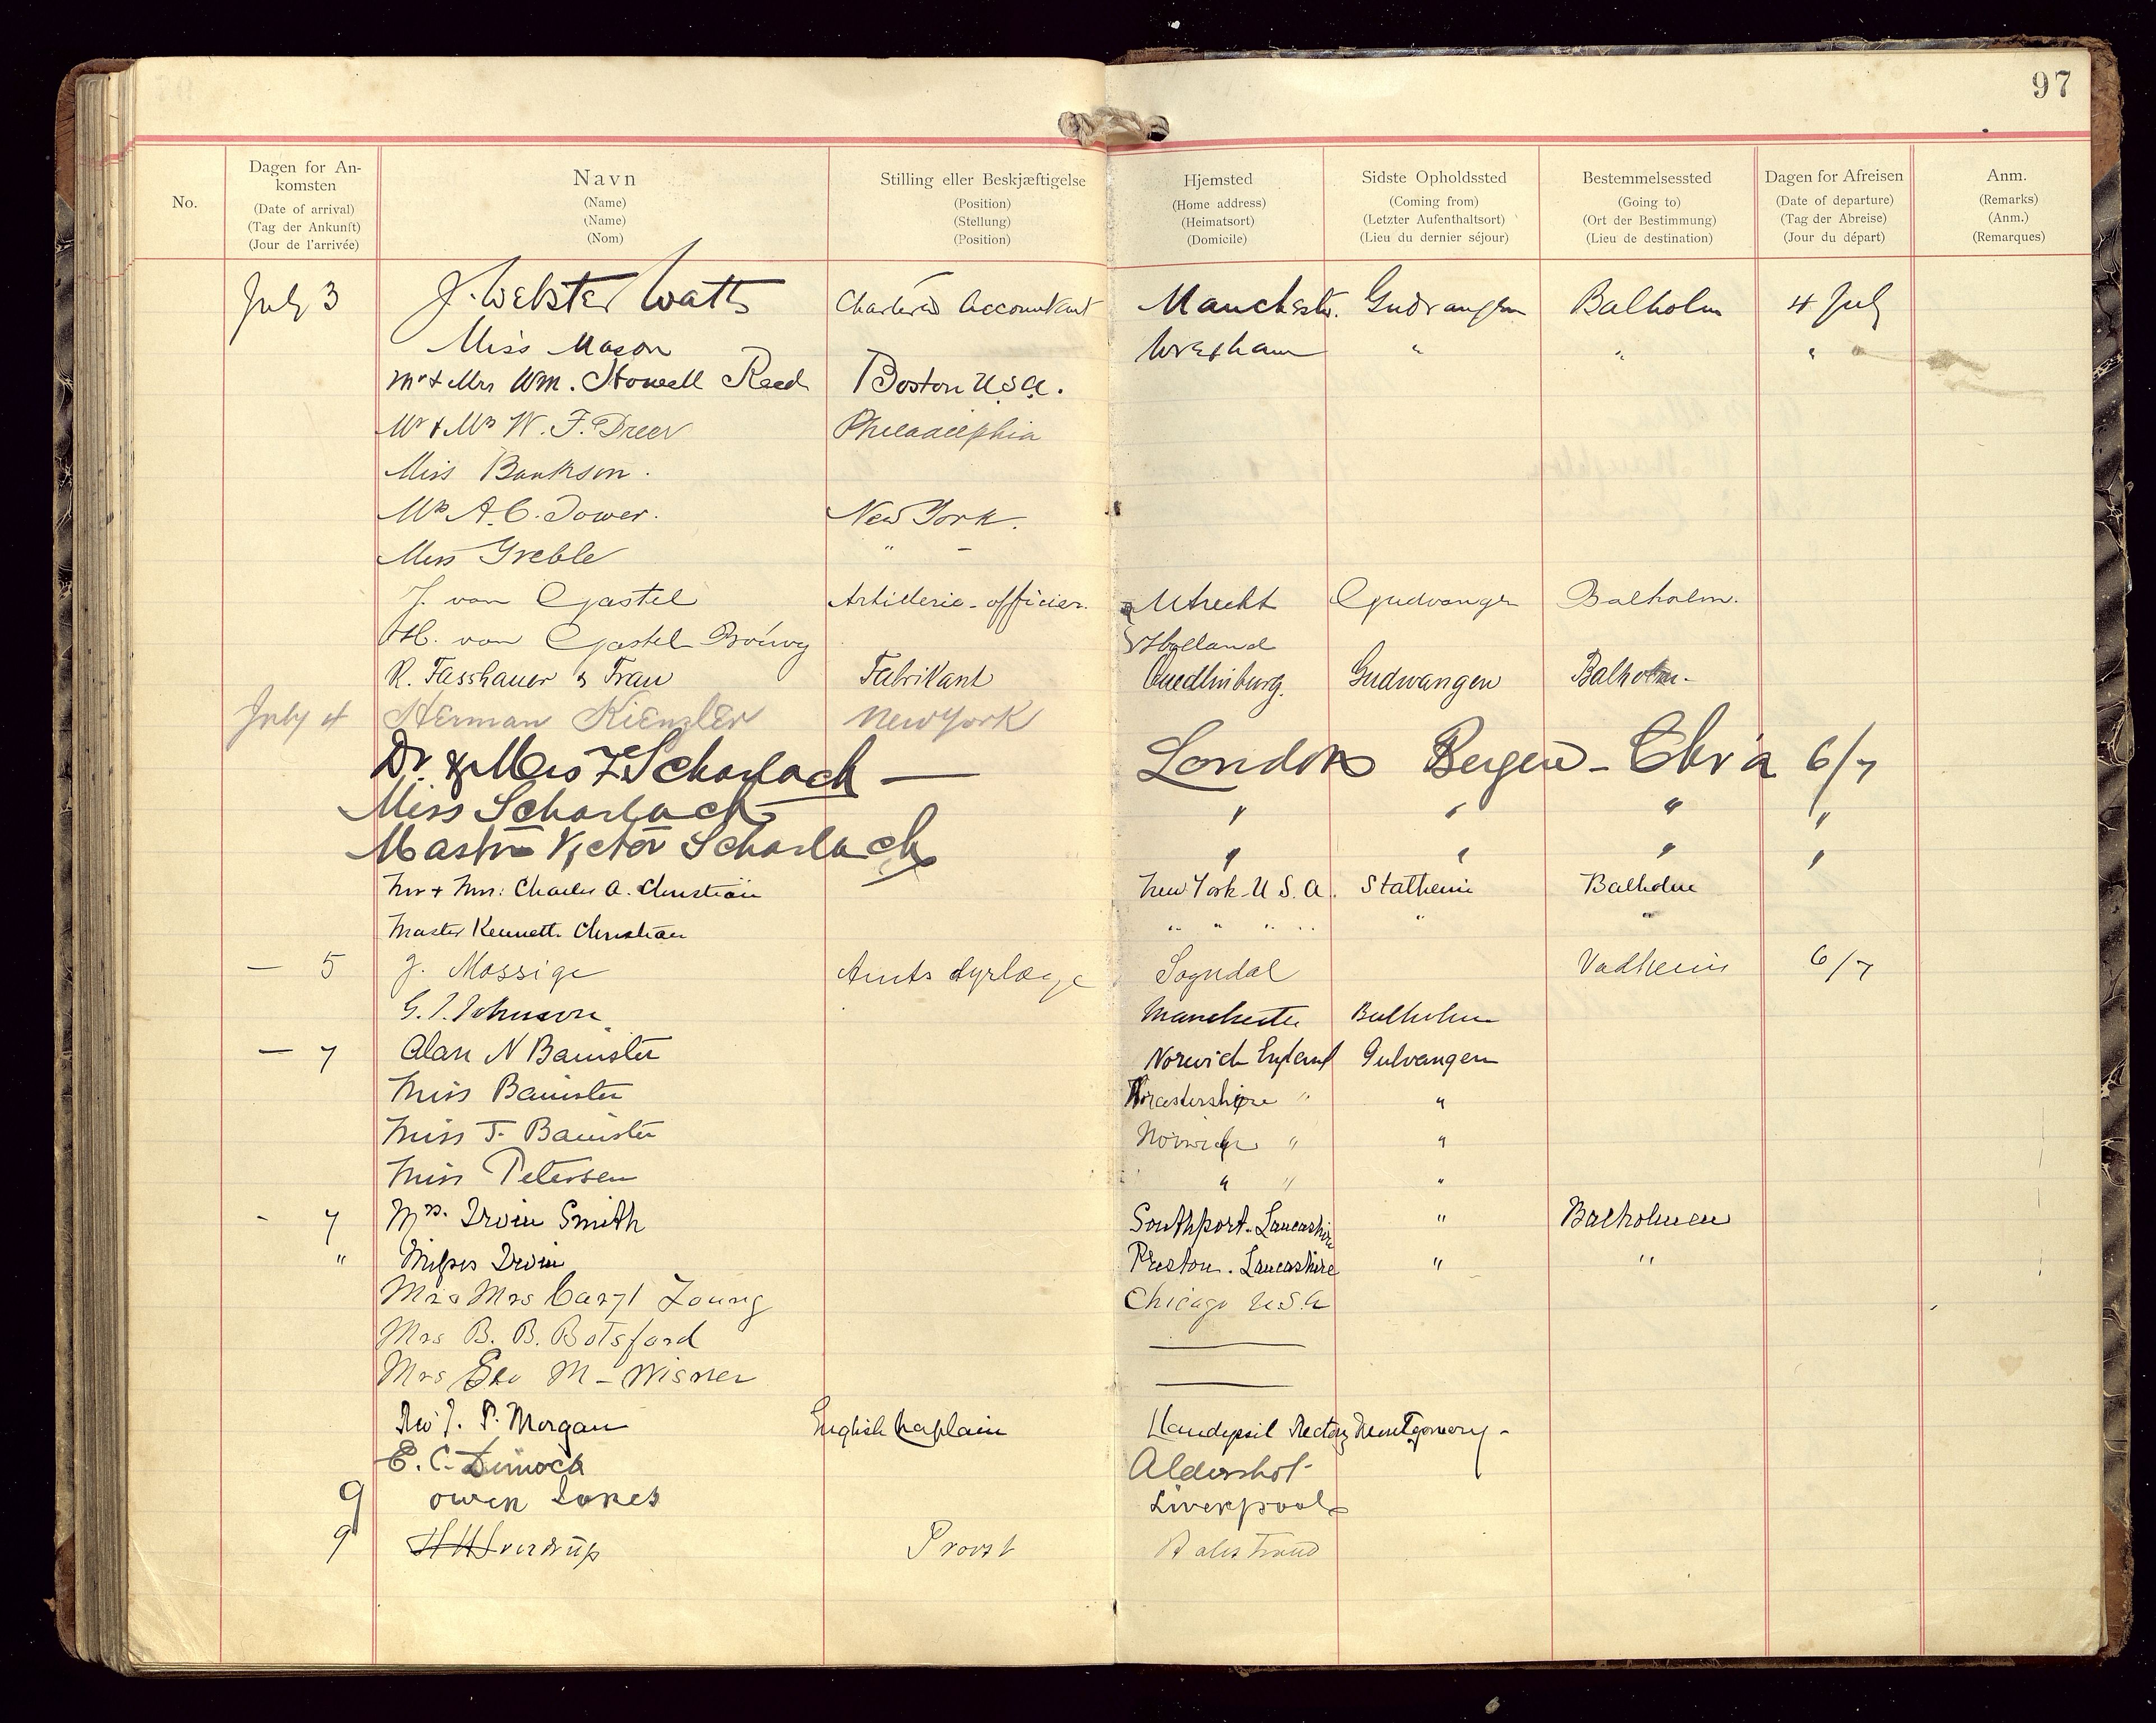 97
No. Dagen for An-komsten (Date of arrival) (Tag der Ankunft) (Jour de l'arrivée) Navn (Name) (Name) (Nom) Stilling eller Beskjæftigelse (Position) (Stellung) (Position) Hjemsted (Home address) (Heimatsort) (Domicile) Sidste Opholdssted (Coming from) (Letzter Aufenthaltsort) (Lieu du dernier séjour) Bestemmelsessted (Going to) (Ort der Bestimmung) (Lieu de destination) Dagen for Afreisen (Date of departure) (Tag der Abreise) (Jour du départ) Anm. (Remarks) (Anm.) (Remarques)
July 3 J. Webster Watts Chartered Accountant Manchester. Gudvangen Balholm 4 July
Miss Mason Wrexham " " "
Mr & Mrs Wm. Howell Reed Boston U.S.A.
Mr & Mrs W. F. Dreer Philadelphia
Miss Bankson.
Mrs A. C. Dower. New York.
Miss Greble " -
J. van Gastel Artillerie-officier. Utrecht Gudvangen Balholm.
H. van Gastel Holland
R. Fasshauer & Frau Fabrikant Quedlinburg. Gudwangen Balholm.
July 4 Herman Kienzler New York
Dr. & Mrs Scharlach — London Bergen - Chr'a 6/7
Miss Scharlach " " " "
Master Victor Scharlach " " " "
Mr + Mrs: Charles A. Christian New York U.S.A. Stalheim Balholm
Master Kenneth Christian " " " " " "
— 5 J. Mossige Amtsdyrlæge Sogndal Vadheim 6/7
G. J. Johnson Manchester Balholm
— 7 Alan N Banister Norwich England Gulvangen
Miss Banister Worcestershire " "
Miss J. Banister Norwich " "
Miss Petersen " " "
- 7 Mrs. Irvin Smith Southport. Lancashire " Balholmen
" Misses Irvin Preston. Lancashire " "
Mr & Mrs Caryl Young Chicago U.S.A
Mrs B. B. Botsford —
Mrs Geo M - Wisner —
Rev J. P. Morgan English Chaplain Llandyssil Rectory Montgomery -
E. C. Dimock Aldershot
9 Owen Jones Liverpool
9 HHSverdrup Provst Balestrand